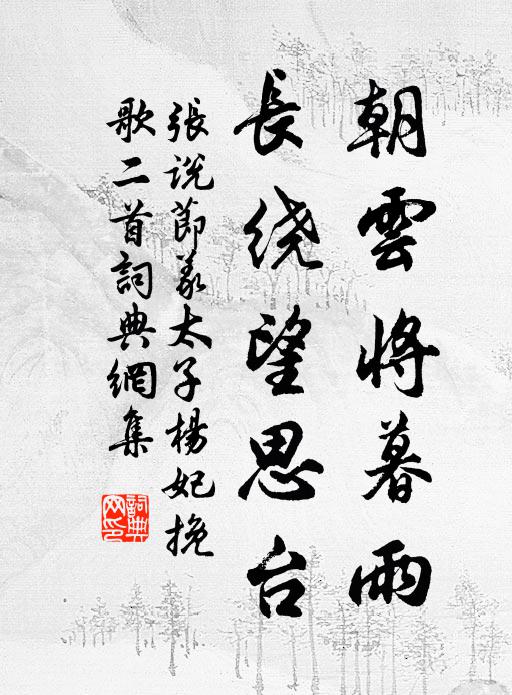 朝雲將暮雨
長绕望思台
張说節義太子楊妃挽
歌二首詞典網集
詞典
网印